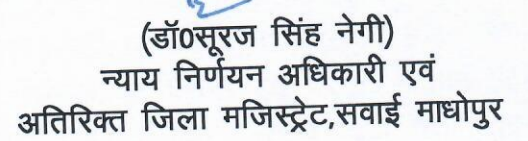 (डॉ0सूरज सिंह नेगी)
न्याय निर्णयन अधिकारी एवं
अतिरिक्त जिला मजिस्ट्रेट,सवाई माधोपुर